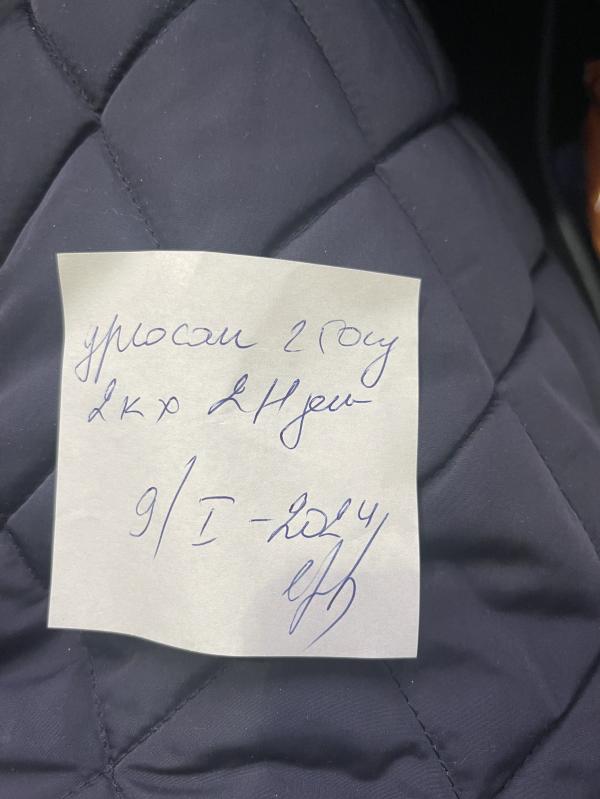 урюсан 2 госу
2к х 2 Н ден
9/I-2024